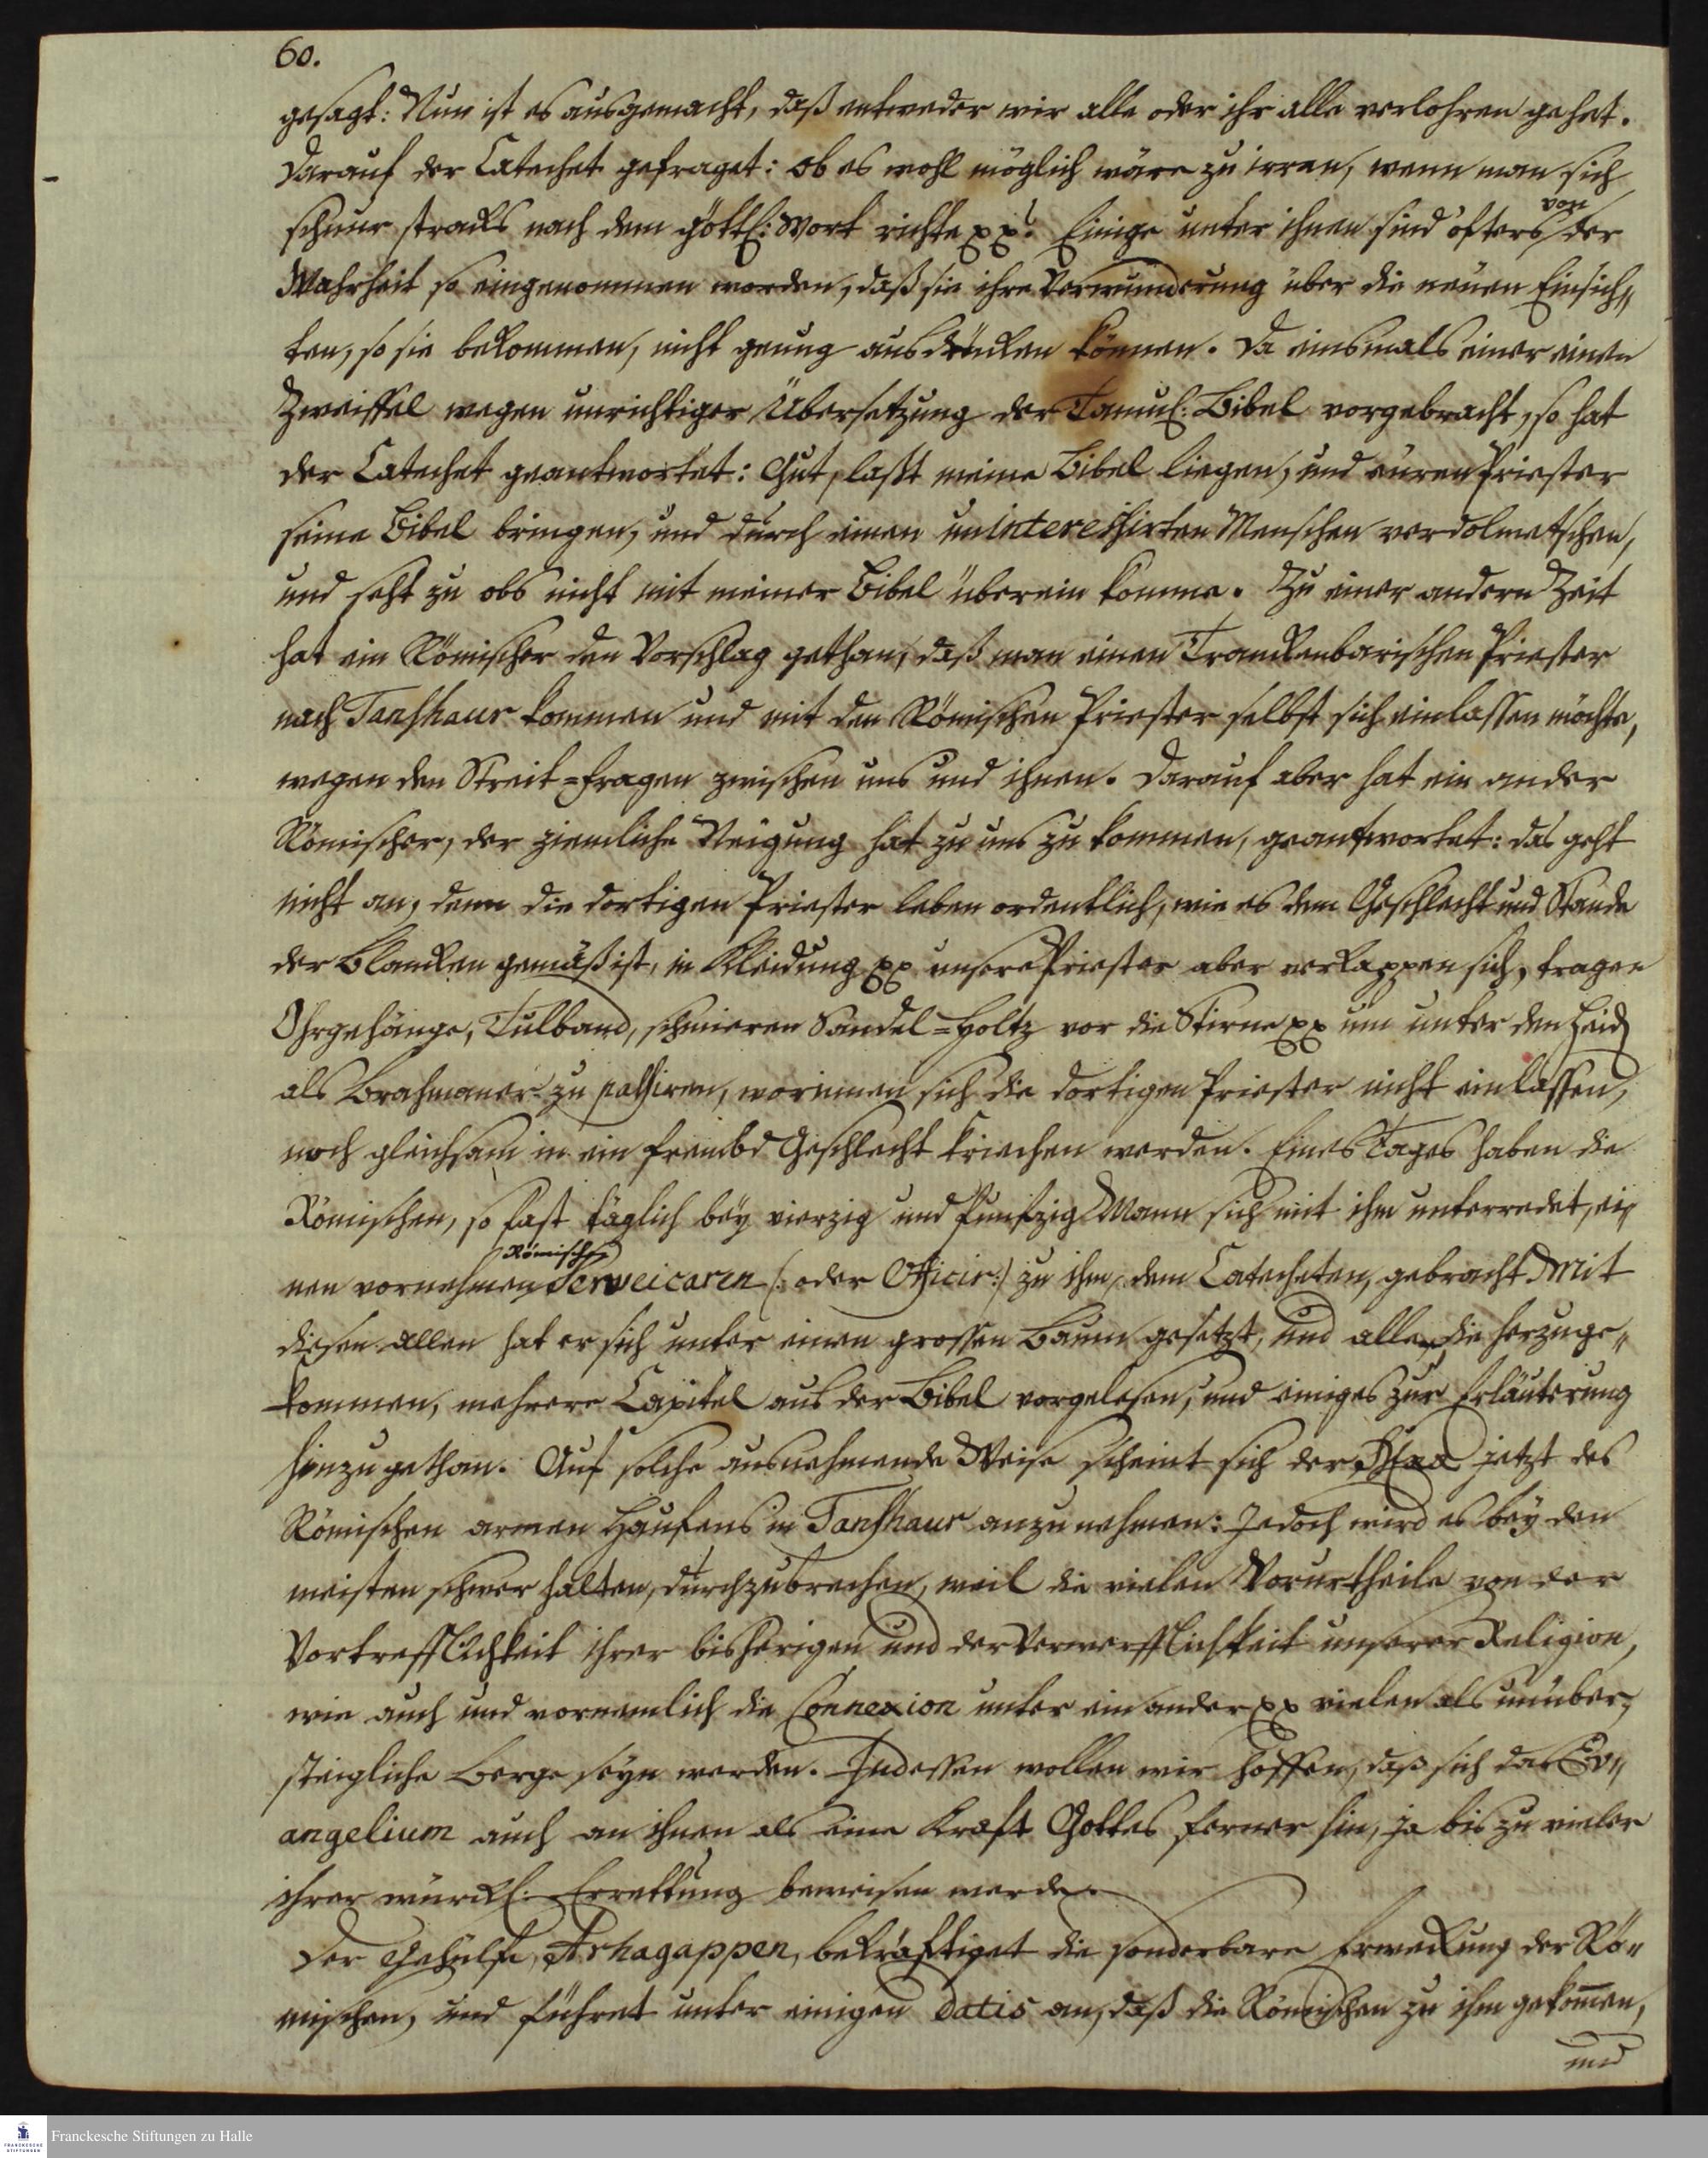 60.
gesagt: Nun ist es ausgemacht, daß entweder wir alle oder ihr alle verlohren gehet.
Darauf der Catechet gefraget: ob es wohl möglich wäre zu irren, wenn man sich
schnur stracks nach dem göttl: Wort richte pp? Einige unter ihnen sind öfters von der
Wahrheit so eingenommen worden, daß sie ihre Verwunderung über die neuen Einsich„
ten, so sie bekommen, nicht genug ausdrücken können. Da einsmals einer einen
Zweiffel wegen unrichtiger Übersetzung der Tamul: Bibel vorgebracht, so hat
der Catechet geantwortet: Gut, laßt meine Bibel liegen, und euren Priester
seine Bibel bringen, und durch einen uninteressirten Menschen verdolmetschen,
und seht zu obs nicht mit meiner Bibel überein komme. Zu einer andern Zeit
hat ein Römischer den Vorschlag gethan, daß man einen Tranckenbarischen Priester
nach Tanshaur kommen und mit den Römischen Priester selbst sich einlassen möchte,
wegen den Streit=fragen zwischen uns und ihnen. Darauf aber hat ein ander
Römischer, der ziemliche Neigung hat zu uns zu kommen, geantwortet: das geht
nicht an, denn die dortigen Priester leben ordentlich, wie es dem Geschlecht und Stande
der Blancken gemäß ist, in Kleidung pp unsere Priester aber verkappen sich, tragen
Ohrgehänge, Tulband, schmieren Sandel=Holtz vor die Stirne pp um unter den Heid
als Brahmaner zu passiren, worinnen sich die dortigen Priester nicht einlassen,
noch gleichsam in ein frembd Geschlecht kriechen werden. Eines Tages haben die
Römischen, so fast täglich bey vierzig und funfzig Mann sich mit ihm unterredet, ei„
nen vornehmen Römisch Serweicaren (: oder Officir:) zu ihm, dem Catecheten, gebracht Mit
diesen allen hat er sich unter einen grossen Baum gesetzt, und allen, die herzuge„
kommen, mehrere Capitel aus der Bibel vorgelesen, und einiges zur Erläuterung
hinzu gethan. Auf solche ausnehmende Weise scheint sich der HErr jetzt des
Römischen armen Haufens in Tanshaur anzunehmen: Jedoch wird es bey den
meisten schwer halten, durchzubrechen, weil die vielen Vorurtheile von der
Vortrefflichkeit ihrer bisherigen und der Verwerfflichkeit unserer Religion,
wie auch und vornemlich die Connexion unter ein ander pp vielen als unüber„
steigliche Berge seyn werden. Indessen wollen wir hoffen, daß sich das Ev„
angelium auch an ihnen als eine Kraft Gottes ferner hin, ja bis zu vieler
ihrer würckl: Errettung beweisen werde.
Der Gehülfe, Arhagappen, bekräftiget die sonderbare Erweckung der Rö„
mischen, und führet unter einigen Datis an, daß die Römischen zu ihm gekommen,
und
Franckesche Stiftungen zu Halle